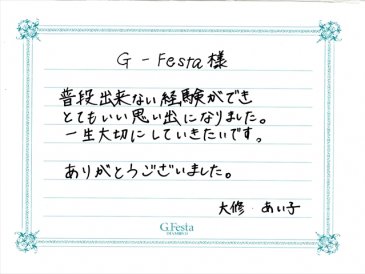 G-Festa様
普段出来ない経験ができ
とてもいい思い出になりました。
一生大切にしていきたいです。
ありがとうございました。
大修 あい子
G.Festa
DIAMOND